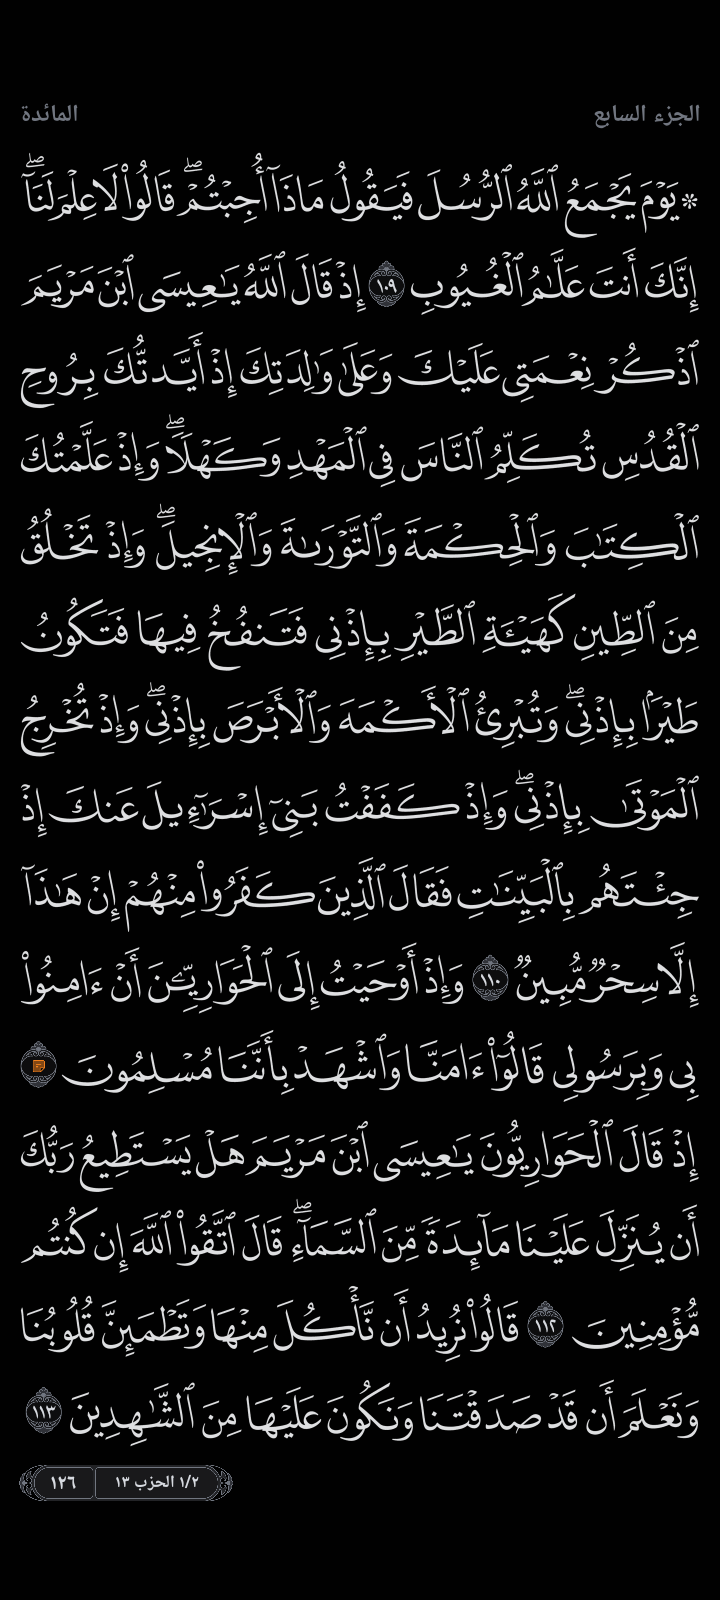 الجزء السابع
المائدة
۞ يَوۡمَ يَجۡمَعُ ٱللَّهُ ٱلرُّسُلَ فَيَقُولُ مَاذَآ أُجِبۡتُمۡۖ قَالُواْ لَا عِلۡمَ لَنَآۖ
إِنَّكَ أَنتَ عَلَّٰمُ ٱلۡغُيُوبِ ١٠٩ إِذۡ قَالَ ٱللَّهُ يَٰعِيسَى ٱبۡنَ مَرۡيَمَ
ٱذۡكُرۡ نِعۡمَتِي عَلَيۡكَ وَعَلَىٰ وَٰلِدَتِكَ إِذۡ أَيَّدتُّكَ بِرُوحِ
ٱلۡقُدُسِ تُكَلِّمُ ٱلنَّاسَ فِي ٱلۡمَهۡدِ وَكَهۡلٗاۖ وَإِذۡ عَلَّمۡتُكَ
ٱلۡكِتَٰبَ وَٱلۡحِكۡمَةَ وَٱلتَّوۡرَىٰةَ وَٱلۡإِنجِيلَۖ وَإِذۡ تَخۡلُقُ
مِنَ ٱلطِّينِ كَهَيۡـَٔةِ ٱلطَّيۡرِ بِإِذۡنِي فَتَنفُخُ فِيهَا فَتَكُونُ
طَيۡرَۢا بِإِذۡنِيۖ وَتُبۡرِئُ ٱلۡأَكۡمَهَ وَٱلۡأَبۡرَصَ بِإِذۡنِيۖ وَإِذۡ تُخۡرِجُ
ٱلۡمَوۡتَىٰ بِإِذۡنِيۖ وَإِذۡ كَفَفۡتُ بَنِيٓ إِسۡرَٰٓءِيلَ عَنكَ إِذۡ
جِئۡتَهُم بِٱلۡبَيِّنَٰتِ فَقَالَ ٱلَّذِينَ كَفَرُواْ مِنۡهُمۡ إِنۡ هَٰذَآ
إِلَّا سِحۡرٞ مُّبِينٞ ١١٠ وَإِذۡ أَوۡحَيۡتُ إِلَى ٱلۡحَوَارِيِّـۧنَ أَنۡ ءَامِنُواْ
بِي وَبِرَسُولِي قَالُوٓاْ ءَامَنَّا وَٱشۡهَدۡ بِأَنَّنَا مُسۡلِمُونَ
إِذۡ قَالَ ٱلۡحَوَارِيُّونَ يَٰعِيسَى ٱبۡنَ مَرۡيَمَ هَلۡ يَسۡتَطِيعُ رَبُّكَ
أَن يُنَزِّلَ عَلَيۡنَا مَآئِدَةٗ مِّنَ ٱلسَّمَآءِۖ قَالَ ٱتَّقُواْ ٱللَّهَ إِن كُنتُم
مُّؤۡمِنِينَ ١١٢ قَالُواْ نُرِيدُ أَن نَّأۡكُلَ مِنۡهَا وَتَطۡمَئِنَّ قُلُوبُنَا
وَنَعۡلَمَ أَن قَدۡ صَدَقۡتَنَا وَنَكُونَ عَلَيۡهَا مِنَ ٱلشَّٰهِدِينَ ١١٣
١/٢ الحزب ١٣
١٢٦